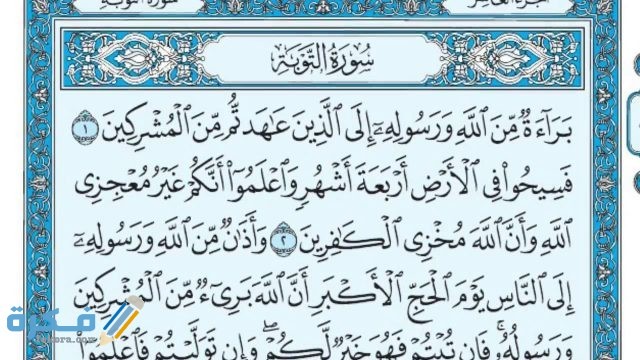 سُورَةُ التَّوْبَةِ
بَرَآءَةٌ مِّنَ اللَّهِ وَرَسُولِهِۦٓ إِلَى الَّذِينَ عَٰهَدتُّم مِّنَ الْمُشْرِكِينَ ١
فَسِيحُوا۟ فِى الْأَرْضِ أَرْبَعَةَ أَشْهُرٍ وَاعْلَمُوٓا۟ أَنَّكُمْ غَيْرُ مُعْجِزِى
اللَّهِ وَأَنَّ اللَّهَ مُخْزِى الْكَٰفِرِينَ ٢ وَأَذَٰنٌ مِّنَ اللَّهِ وَرَسُولِهِۦٓ
إِلَى النَّاسِ يَوْمَ الْحَجِّ الْأَكْبَرِ أَنَّ اللَّهَ بَرِىٓءٌ مِّنَ الْمُشْرِكِينَ
وَرَسُولُهُۥ فَإِن تُبْتُمْ فَهُوَ خَيْرٌ لَّكُمْ وَإِن تَوَلَّيْتُمْ فَاعْلَمُوٓا۟
فكرة